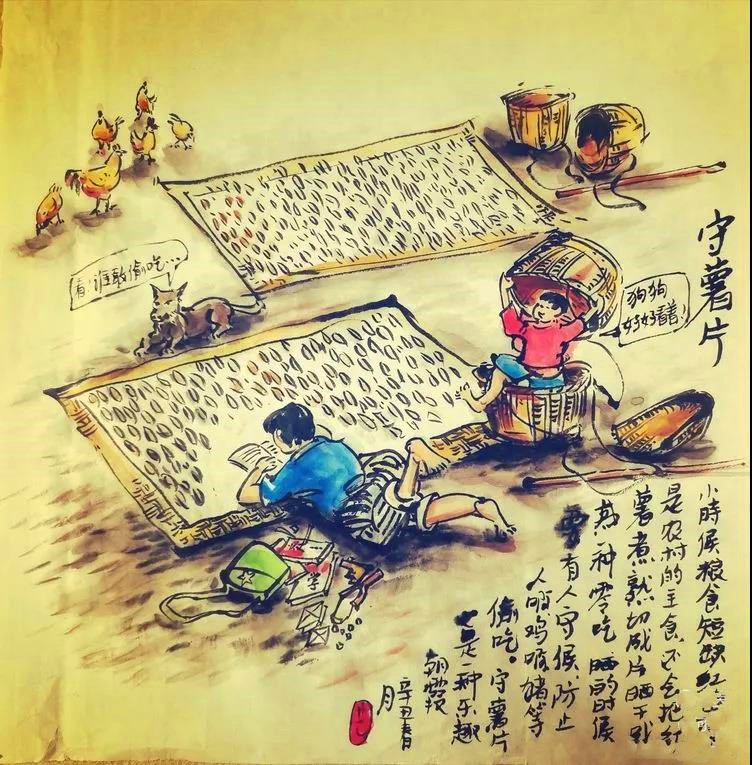 守薯片
看!谁敢偷吃…
狗狗
好好看着!
小時候粮食短缺红
是农村的主食,还会把红
薯煮熟切成片晒干
为一种零吃,晒的时候
要有人守候,防止
人呀鸡呀猪等
偷吃。守薯片
也是一种乐趣
朝霞
辛丑春
月